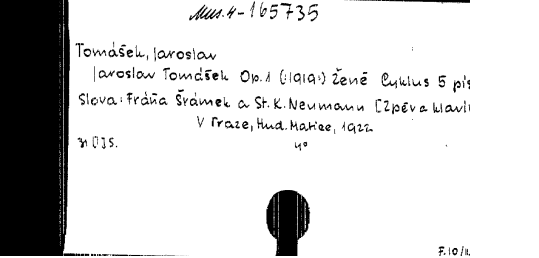 Mus. 4-165735
Tomášek, Jaroslav
Jaroslav Tomášek Op. 1 (:1919:) Ženě Cyklus 5 pís
Slova: Fráňa Šrámek a St. K. Neumann [Zpěv a klaví
V Praze, Hud. Matice, 1922
4°
F. 10/